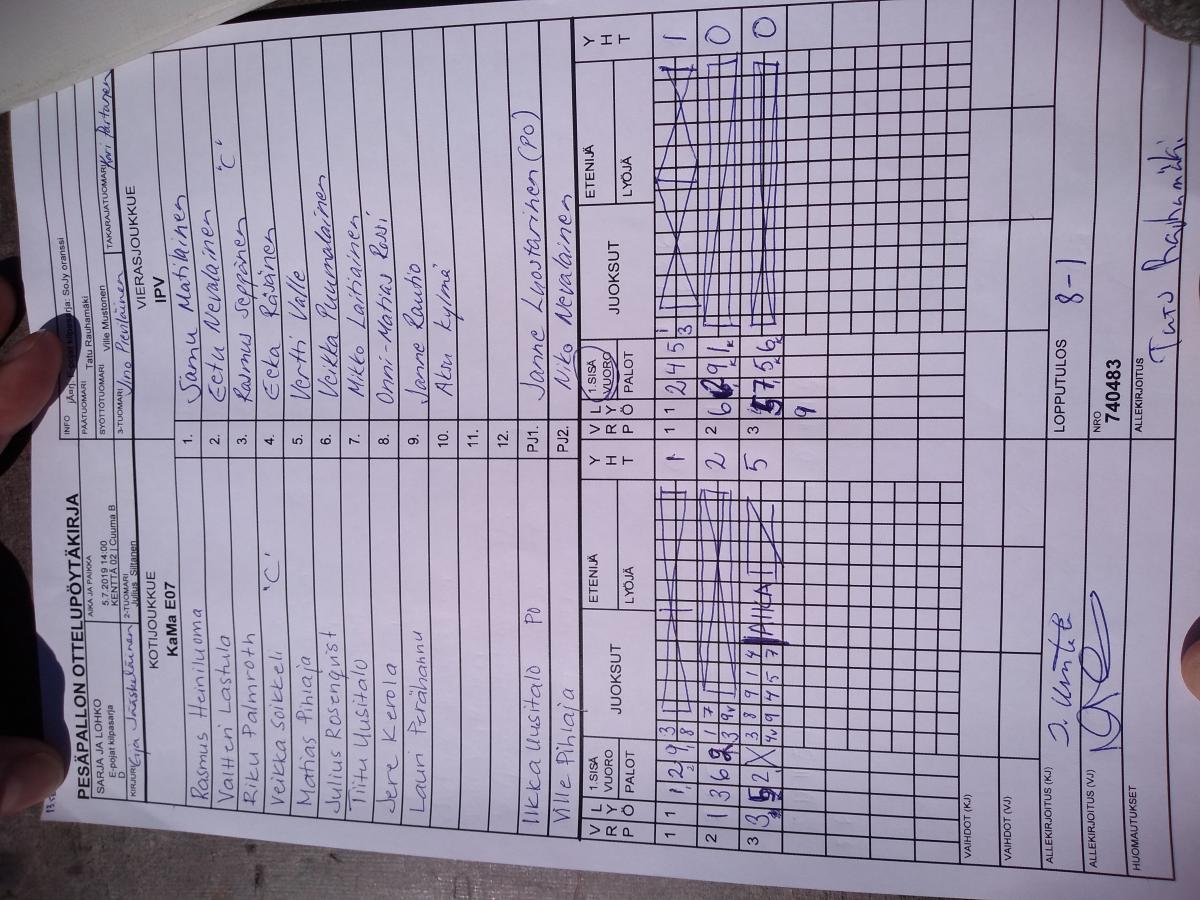 PESÄPALLON OTTELUPÖYTÄKIRJA
SARJA JA LOHKO
E-pojat kilpasarja
D
AIKA JA PAIKKA
5.7.2019 14:00
KENTTÄ 02 | Cuuma B
INFO
PÄÄTUOMARI
Tatu Rauhamäki
SYÖTTÖTUOMARI
Ville Mustonen
KIRJURI Eija Jääskeläinen
2-TUOMARI
Julius Siltanen
3-TUOMARI
TAKARAJATUOMARI Kari Partanen
KOTIJOUKKUE
KaMa E07
VIERASJOUKKUE
IPV
Rasmus Heiniluoma 1. Samu Matilainen
Valtteri Lastula 2. Eetu Nevalainen
Riku Palmroth 3. Rasmus Seppänen "C"
Veikka Soikkeli "C" 4. Eeka Räsänen
Matias Pihlaja 5. Vertti Valle
Julius Rosenqvist 6. Veikka Puumalainen
Tiitu Uusitalo 7. Mikko Laitiainen
Jere Kerola 8. Onni-Matias Rossi
Lauri Perähahnu 9. Janne Rautio
10. Aku Kylmä
11.
12.
Ilkka Uusitalo PO PJ1. Janne Luostarinen (PO)
Ville Pihlaja PJ2. Niko Nevalainen
V L R Y P Ö 1.SISÄ VUORO PALOT JUOKSUT ETENIJÄ LYÖJÄ Y H T
V L R Y P Ö 1.SISÄ VUORO PALOT JUOKSUT ETENIJÄ LYÖJÄ Y H T
1 1 1 2 9 3 1 1 1 2 4 5 3 1
2 1 3 6 1 7 2 2 6 9 1 0
3 3 2 X 3 8 9 1 4 AIKA 5 3 7 5 6 0
4v 9 4 4 5 7 9
VAIHDOT (KJ)
VAIHDOT (VJ)
ALLEKIRJOITUS (KJ)
LOPPUTULOS 8-1
ALLEKIRJOITUS (VJ)
NRO
740483
HUOMAUTUKSET
ALLEKIRJOITUS
Tatu Rauhamäki